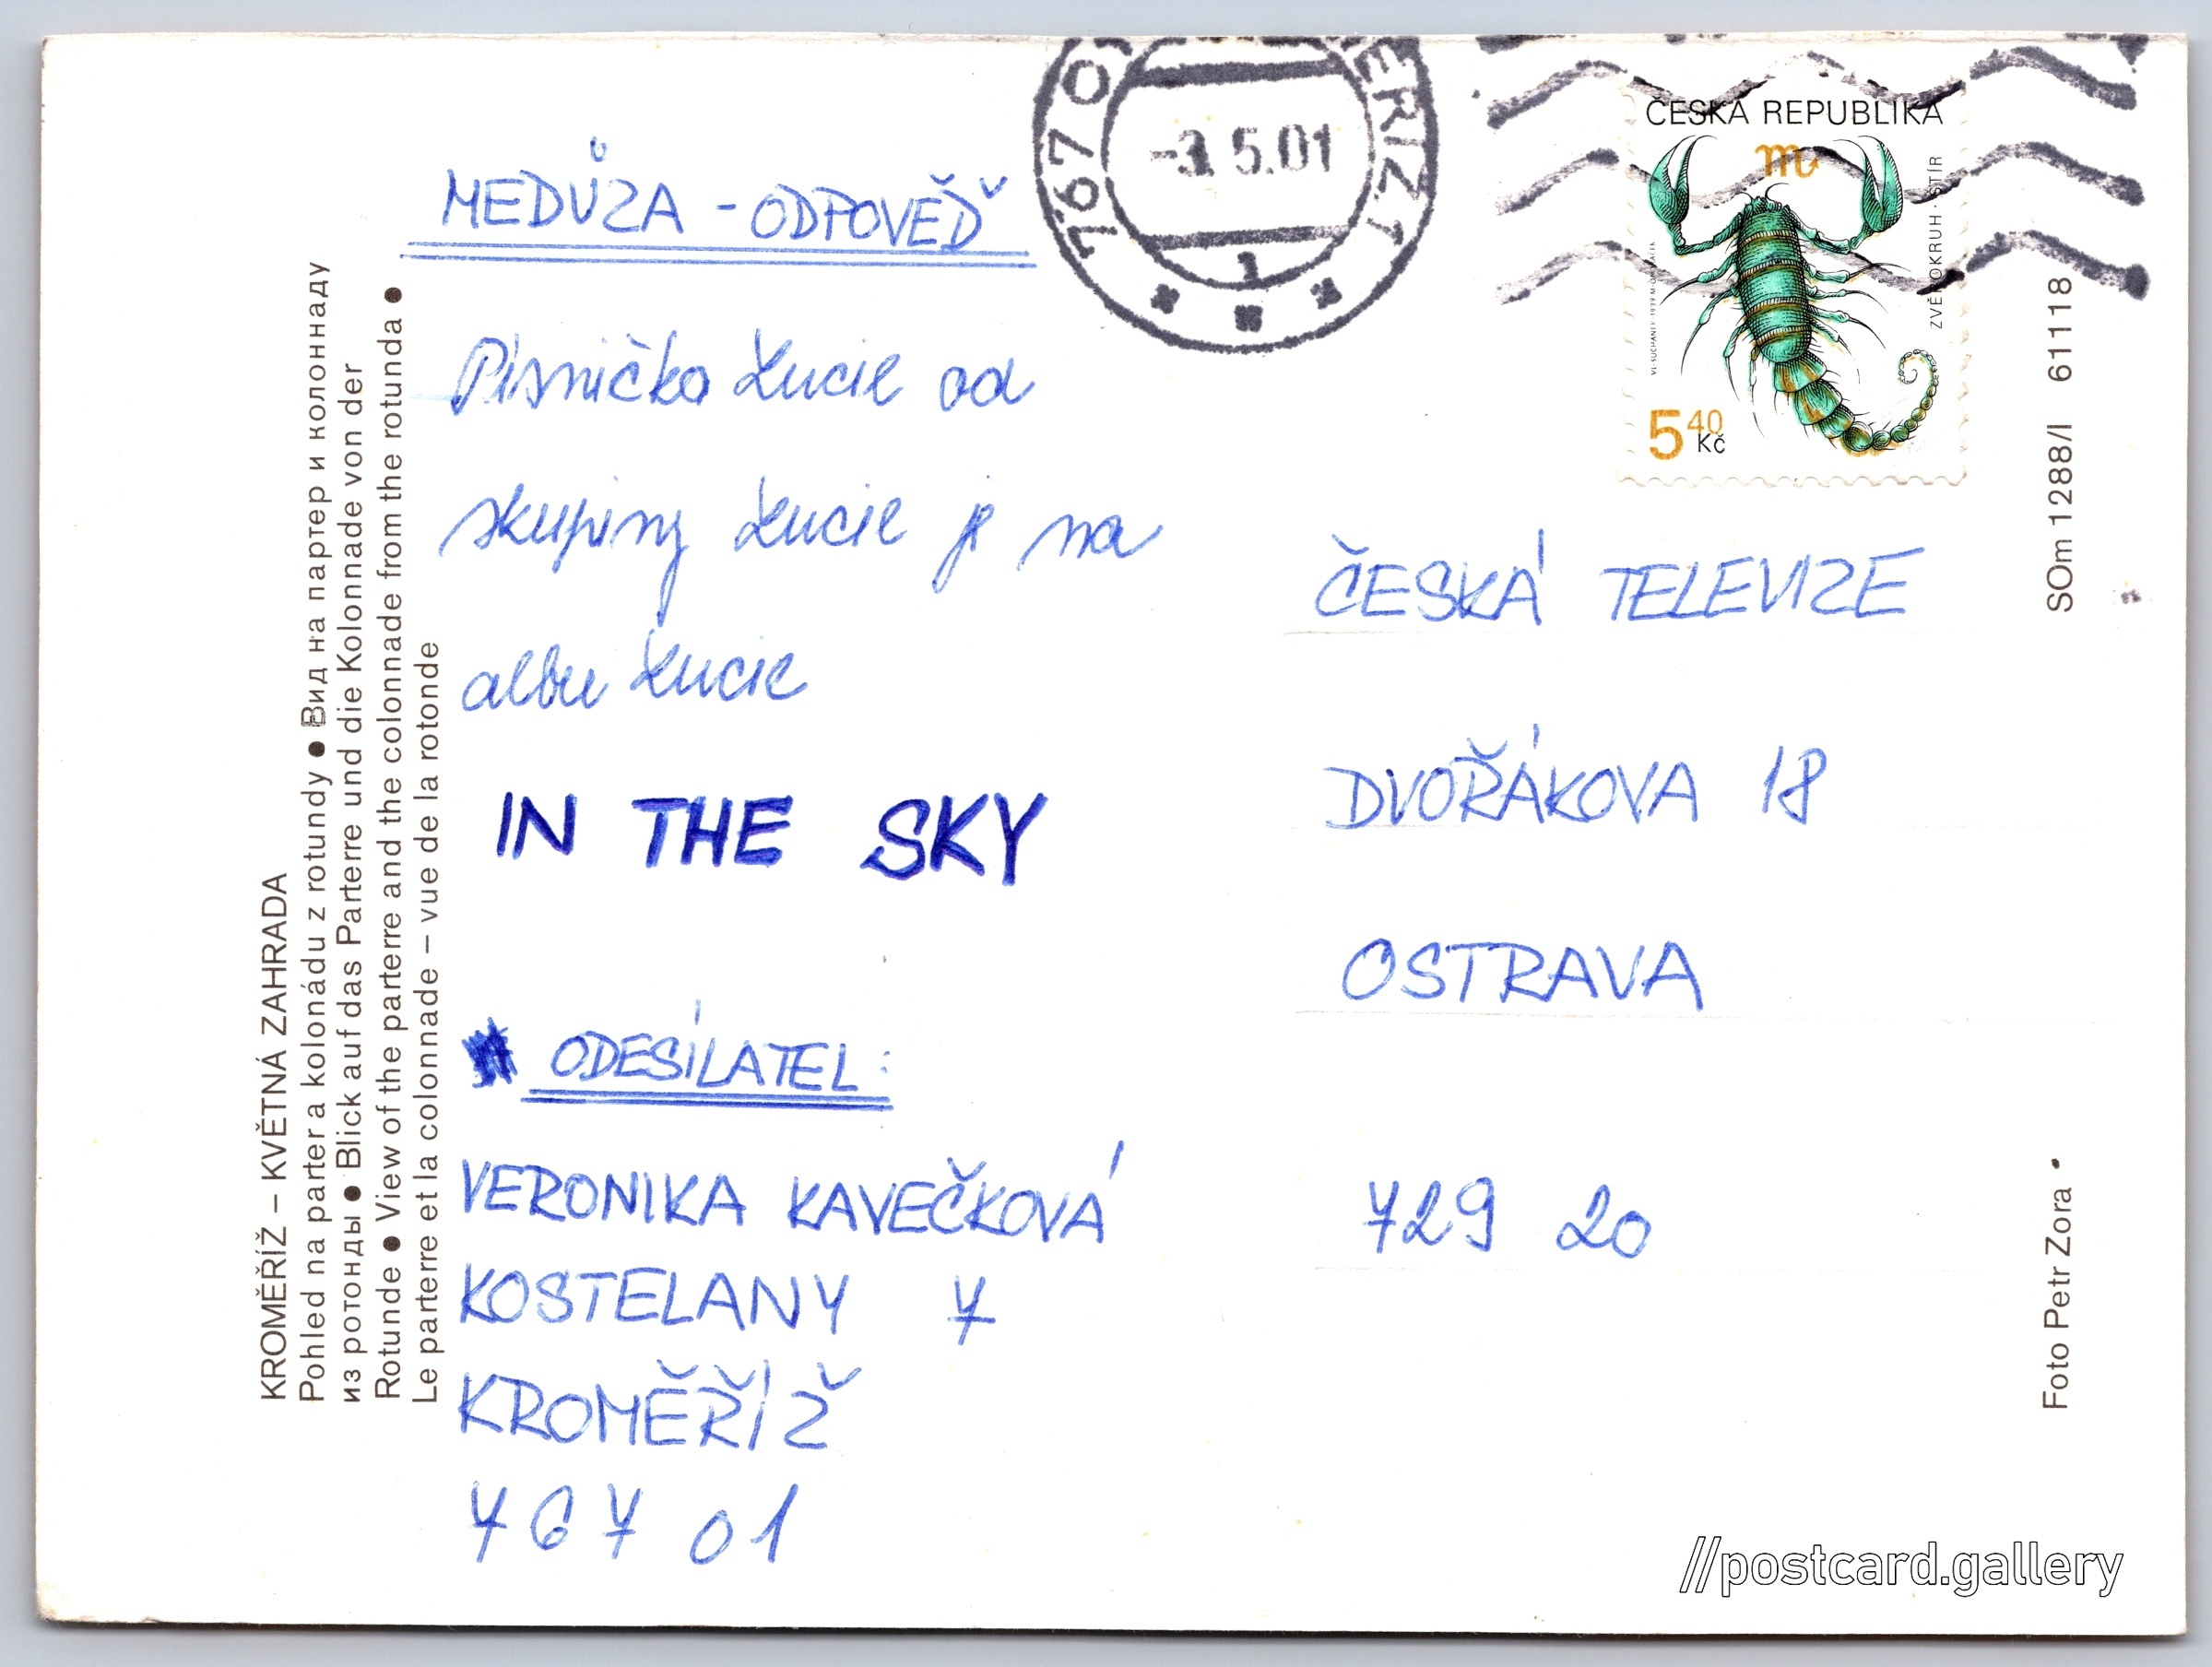 KROMĚŘÍŽ – KVĚTNÁ ZAHRADA
Pohled na parter a kolonádu z rotundy ● Вид на партер и колоннаду
из ротонды ● Blick auf das Parterre und die Kolonnade von der
Rotunde ● View of the parterre and the colonnade from the rotunda ●
Le parterre et la colonnade – vue de la rotonde
MEDŮZA - ODPOVĚĎ
Písnička Lucie od
skupiny Lucie je na
albu Lucie
IN THE SKY
ODESÍLATEL:
VERONIKA KAVEČKOVÁ
KOSTELANY 7
KROMĚŘÍŽ
767 01
767 0
ĚŘÍŽ 1
-3.5.01
1
ČESKÁ REPUBLIKA
ZVĚROKRUH · ŠTÍR
5 40 Kč
ČESKÁ TELEVIZE
DVOŘÁKOVA 18
OSTRAVA
729 20
SOm 1288/I 61118
Foto Petr Zora •
//postcard.gallery